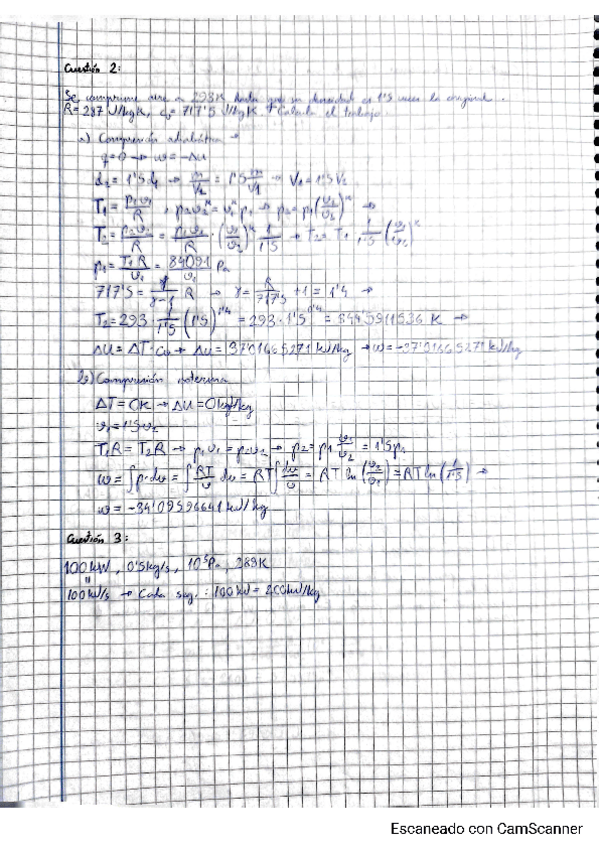 Cuestión 2:
Se comprime aire a 293K hasta que su densidad es 1'5 veces la original.
R=287 J/kgK, cv=717'5 J/kgK. Calcula el trabajo.
a) Compresión adiabática →
q=0 → w=-Δu
d₂=1'5d₁ → m/V₂ = 1'5 m/V₁ → V₁=1'5V₂
T₁=p₁v₁/R, p₂v₂^κ=v₁^κ p₁ → p₂=p₁(v₁/v₂)^κ →
T₂=p₂v₂/R = p₁v₁/R · (v₁/v₂)^κ 1/1'5 → T₂=T₁ 1/1'5 (v₁/v₂)^κ
p₁=T₁R/v₁ = 84091/v₁ Pa
717'5 = 1/(γ-1) R → γ= R/717'5 +1=1'4 →
T₂=293 · 1/1'5 (1'5)^1'4 = 293·1'5^0'4 = 344'5911536 K →
Δu=ΔT·cv → Δu= 37'01665271 kJ/kg → w=-37'01665271 kJ/kg
b) Compresión isoterma
ΔT=0K → Δu=0kJ/kg
v₁=1'5v₂
T₁R=T₂R → p₁v₁=p₂v₂ → p₂=p₁ v₁/v₂ = 1'5p₁
w=∫p·dv=∫RT/v dv = RT∫dv/v = RT ln(v₂/v₁)=RT ln(1/1'5) →
w= -34'09596641 kJ/kg
Cuestión 3:
100kW, 0'5kg/s, 10⁵Pa, 288K
100kJ/s → Cada seg.: 100kJ = 200kJ/kg
Escaneado con CamScanner